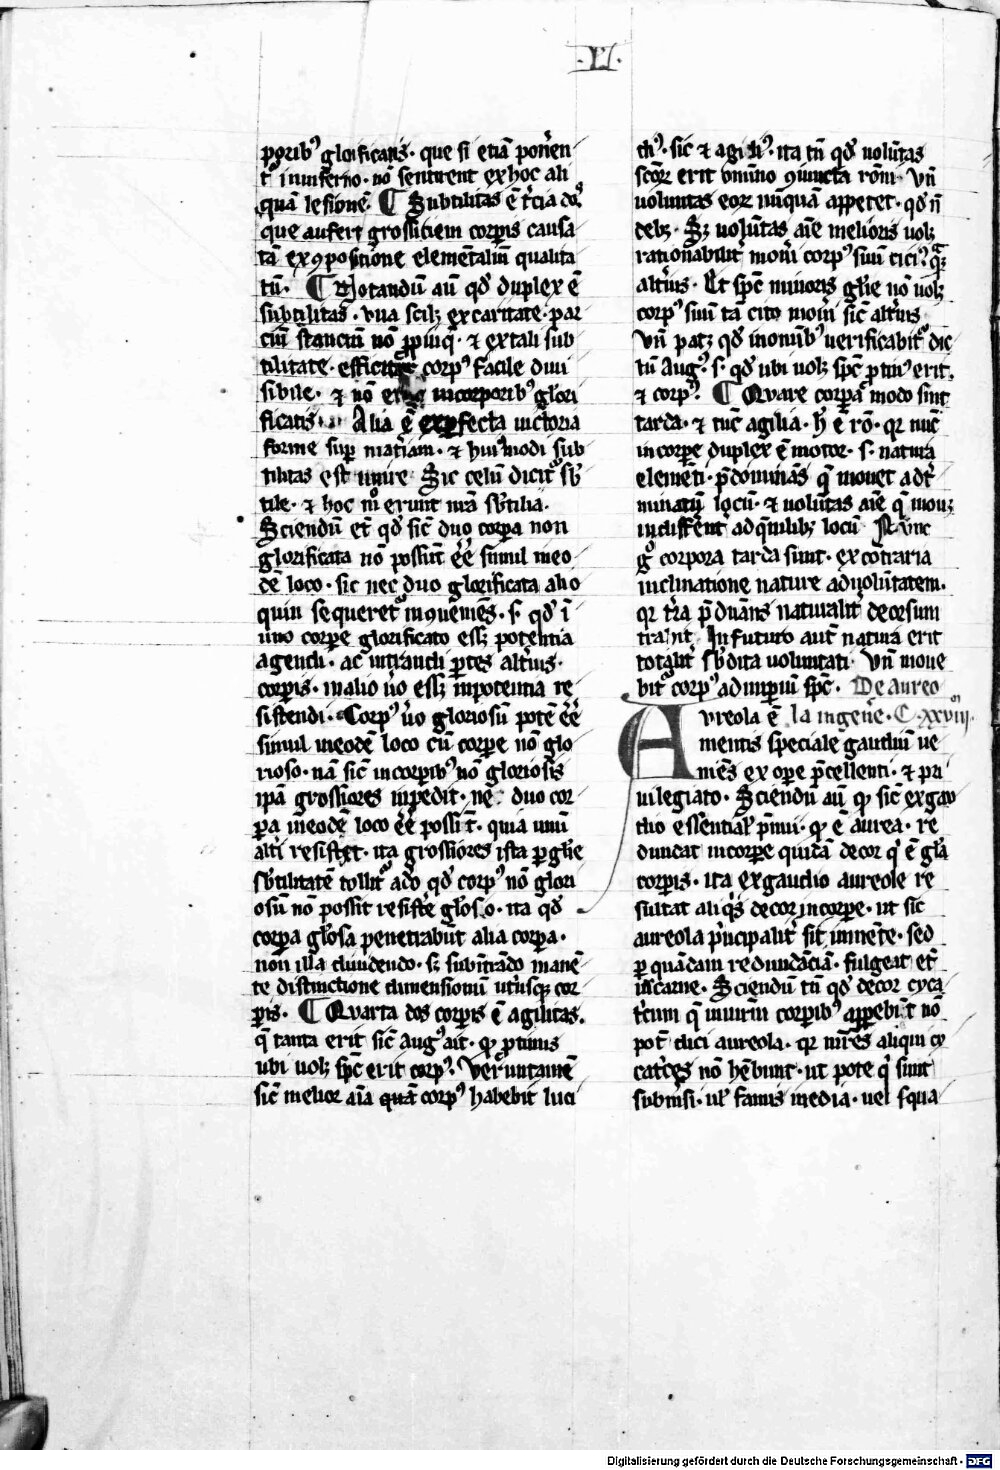 .VI.
poribꝰ glorificatis · que si etiā ponēen
tᷣ in inferno · nō sentirent ex hoc ali
quā lesionē. ¶ Subtilitas ē t̄cia dos
que aufert grossiciem corꝑis causa
tā ex ꝯpositione elementaliū qualita
tū. ¶ Notandū aū qd̛ duplex ē
subtilitas · vna scilꝫ ex caritate · par
ciū stanciū nō ꝓpinq̄ · ⁊ ex tali sub
tilitate · efficitᷣ corpꝰ facile diui
sibile · ⁊ nō in corporibꝰ glori
ficatis · Alia ē ex ꝑfecta uictoria
forme suꝑ mat̛iam · ⁊ huiꝰmodi sub
tilitas est unire · Sic celū dicitᷣ sb̛
tile · ⁊ hoc mº erunt nr̄a sb̛tilia ·
Sciendū et̄ qd̛ sic̄ duo corꝑa non
glorificata nō possūt ēe simul in eo
dē loco · sic nec duo glorificata alio
quin sequeretᷣ inꝯuēniēs · s · qd̛ ī
uno corꝑe glorificato essꝫ potentia
agendi · ac̄ intrandi ꝑtes alt̛ius ·
corꝑis · in alio ūo essꝫ inpotentia re
sistendi · Corpꝰ ūo gloriosū potē ēe
simul in eodē loco cū corꝑe nō glo
rioso · nā sic̄ in corꝑibꝰ nō gloriosis
ipā grossiores inpedit · ne duo cor
ꝑa in eodē loco ēe possīt · quia unū
alt̛i resistēt · ita grossiores ista ꝑ gl̄ie
sb̛tilitatē tollitᷣ adō qd̛ corpꝰ nō glori
osū nō possit resist̛e gl̄oso · ita qd̛
corꝑa gl̄osa penetrabūt alia corꝑa ·
non illa diuidendo · sꝫ subīt̄ndo manē
te distinctione dimensionū utriusqꝫ cor
ꝑis · ¶ Qvarta dos corꝑis ē agilitas ·
q̄ tanta erit sic̄ Augꝰ ait · qꝛ ꝓtinus
ubi uolꝫ sp̄c erit corpꝰ · Verūtamē
sic̄ melior aīa quā corpꝰ habebit luci
dīꝰ · sic ⁊ agilīꝰ · ita tn̄ qd̛ uolūtas
sc̄oꝝ erit om̄ino ꝯiuncta rōni · Vn̄
uoluntas eoꝝ nūquā appetet · qd̛ n̄
debꝫ · Sꝫ uolūtas aīe melioris uolꝫ
rationabilit̛ moưi corpꝰ suū ciciꝰ qꝫ
alt̛ius · Et sp̄c minoris gl̄ie nō uolꝫ
corpꝰ suū tā cito moưi sic̄ alt̛ius
Vn̄ patꝫ qd̛ in om̄ibꝰ uerificabitᷣ dic̄
tū Augꝰ · s · qd̛ ubi uolꝫ sp̄c ꝓtinꝰ erit
⁊ corpꝰ · ¶ Qvare corꝑa modo sint
tarda · ⁊ tūc agilia · h̛ ē rō · qꝛ nūc
in corꝑe duplex ē motor · s · natura
elemēti · p̄dominās q̄ mouet ad t̛
minatū locū · ⁊ uolūtas aīe q̄ mouꝫ
indiffēnt̛ ad q̄mlibꝫ locū Nūc
gº corpora tarda sunt · ex contraria
inclinatione nature ad uolūtatem ·
qꝛ t̄ra p̄dn̄ans naturalit̛ deorsum
trahit · In futuro aut̄ natura erit
totalit̛ sb̛dita uoluntati · Vn̄ moue
bit̛ corpꝰ ad inꝑiū sp̄c · De aureo
Avreola ē la in gen̄e · C · xxviii ·
mentis speciale gaudiū ue
niēs ex oꝑe p̄cellenti · ⁊ pri
uilegiato · Sciendū aū qꝛ sic̄ ex gau
dio essentiali p̄mii · qꝛ ē aurea · re
dundat in corꝑe quidā decor q̄ ē gl̄a
corꝑis · ita ex gaudio aureole re
sultat aliq̄s decor in corꝑe · ut sic
aureola p̄ncipalit̛ sit in mēte · sed
ꝑ quādam redundāciā · fulgeat et̄
in carne · Sciendū tn̄ qd̛ decor cyca
t̄cum q̄ in uirī corꝑibꝰ appebūt nō
pot̄ dici aureola · qꝛ m̄res aliqui cy
cat̄ces nō hēbunt · ut pote q̄ sunt
submsi · ul̛ famis inedia · uel squa
Digitalisierung gefördert durch die Deutsche Forschungsgemeinschaft - DFG